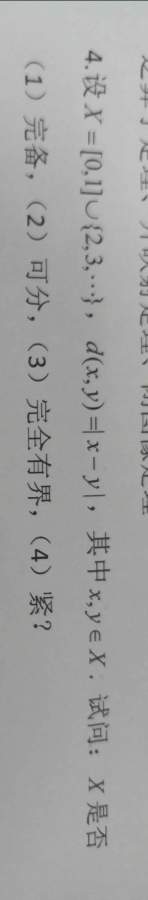 4.设 X = [0,1]∪{2,3,⋯}, d(x,y)=|x−y|, 其中 x,y∈X. 试问: X 是否
(1) 完备, (2) 可分, (3) 完全有界, (4) 紧?